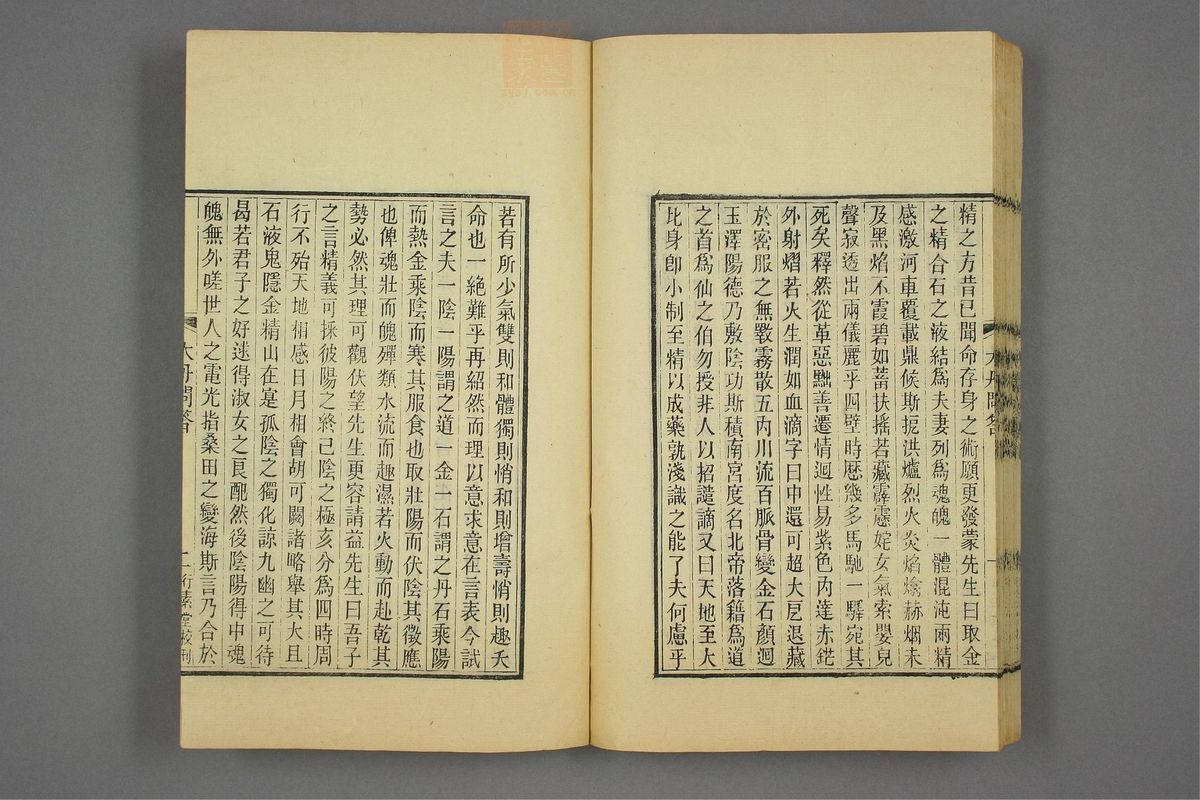 精之方昔已聞命存身之術願更發蒙先生曰取金
之精合石之液結爲夫妻列爲魂魄一體混沌兩精
感激河車覆載鼎候斯扼洪爐烈火炎焰熻赫烟未
及黑焰不霞碧如蓄扶搖若藏霹靂姹女氣索嬰兒
聲寂透出兩儀麗乎四壁時歷幾多馬馳一驛宛其
死矣釋然從革惡黜善遷情迴性易紫色內達赤鋩
外射熠若火生潤如血滴字曰中還可超大戹退藏
於密服之無斁霧散五內川流百脈骨變金石顏迴
玉澤陽德乃敷陰功斯積南宮度名北帝落籍爲道
之首爲仙之伯勿授非人以招譴謫又曰天地至大
比身卽小制至精以成藥孰淺識之能了夫何慮乎
大丹問答
一
若有所少氣雙則和體獨則悄和則增壽悄則趣夭
命也一絕難乎再紹然而理以意求意在言表今試
言之夫一陰一陽謂之道一金一石謂之丹石乘陽
而熱金乘陰而寒其服食也取壯陽而伏陰其徵應
也俾魂壯而魄殫類水流而趣濕若火動而赴乾其
勢必然其理可觀伏望先生更容請益先生曰吾子
之言精義可採彼陽之終已陰之極亥分爲四時周
行不殆天地相感日月相會胡可闕諸略舉其大且
石液鬼隱金精山在寔孤陰之獨化諒九幽之可待
曷若君子之好逑得淑女之良配然後陰陽得中魂
魄無外嗟世人之電光指桑田之變海斯言乃合於
大丹問答
二
行素堂校刊